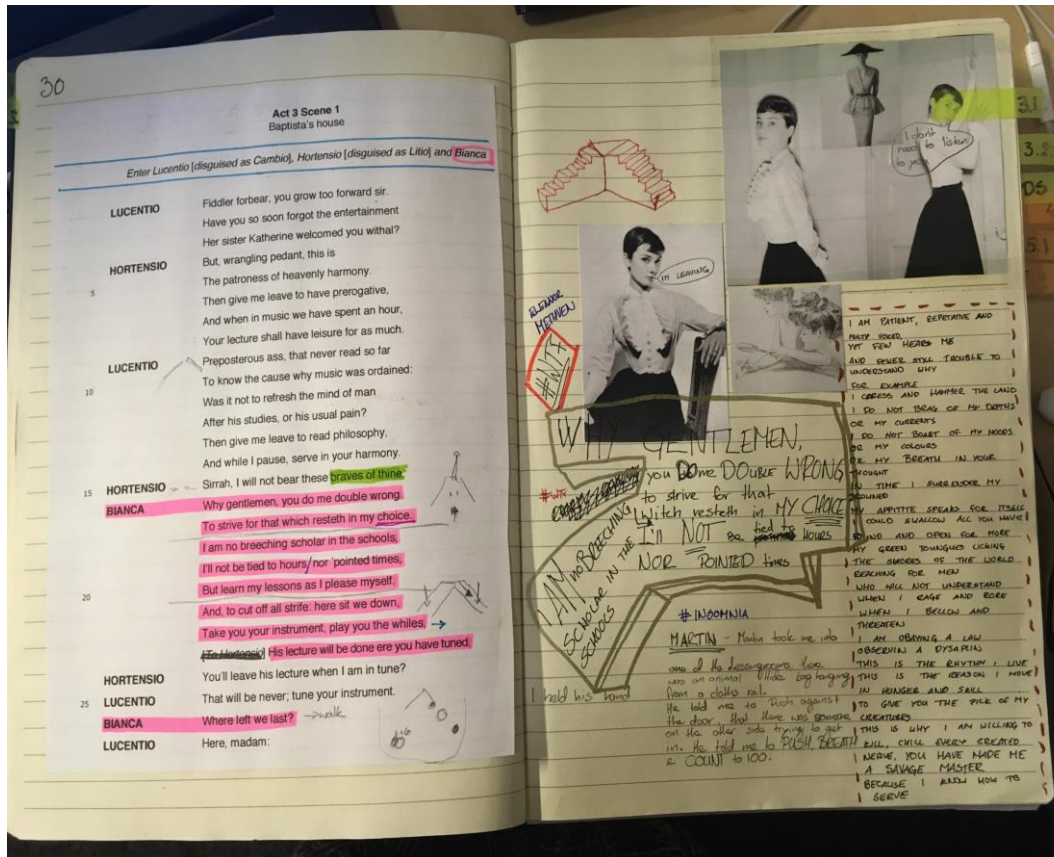 30
Act 3 Scene 1
Baptista's house
Enter Lucentio [disguised as Cambio], Hortensio [disguised as Litio] and Bianca
LUCENTIO Fiddler forbear, you grow too forward sir.
Have you so soon forgot the entertainment
Her sister Katherine welcomed you withal?
HORTENSIO But, wrangling pedant, this is
5 The patroness of heavenly harmony.
Then give me leave to have prerogative,
And when in music we have spent an hour,
Your lecture shall have leisure for as much.
LUCENTIO Preposterous ass, that never read so far
10 To know the cause why music was ordained:
Was it not to refresh the mind of man
After his studies, or his usual pain?
Then give me leave to read philosophy,
And while I pause, serve in your harmony.
15 HORTENSIO Sirrah, I will not bear these braves of thine.
BIANCA Why gentlemen, you do me double wrong
To strive for that which resteth in my choice.
I am no breeching scholar in the schools,
I'll not be tied to hours/nor 'pointed times,
20 But learn my lessons as I please myself.
And, to cut off all strife: here sit we down,
Take you your instrument, play you the whiles,
[To Hortensio] His lecture will be done ere you have tuned.
HORTENSIO You'll leave his lecture when I am in tune?
25 LUCENTIO That will be never; tune your instrument.
BIANCA Where left we last? → walk
LUCENTIO Here, madam:
I don't
need to listen
to you
I'M LEAVING
ELEANOR
METHVEN
WHY GENTLEMEN,
you DOme DOUBLE WRONG
to strive for that
Witch resteth in MY CHOICE
I'll NOT be tied to HOURS
NOR POINTED times
I AM no BREECHING
SCHOLAR IN THE
SCHOOLS
# INSOMNIA
MARTIN - Martin took me into
one of the dressingrooms, there
was an animal Hide bag hanging
from a cloths rail.
I held his hand
He told me to Push against
the door, that there was someone
on the other side trying to get
in. He told me to PUSH, BREATH
& COUNT to 100.
I AM PATIENT, REPETATIVE AND
MULTY VOICED,
YET FEW HEARS ME
AND FEWER STILL TROUBLE TO
UNDERSTAND WHY
FOR EXAMPLE
I CARESS AND HAMMER THE LAND
I DO NOT BRAG OF MY DEPTHS
OR MY CURRENTS
I DO NOT BOAST OF MY MOODS
OR MY COLOURS
OR MY BREATH IN YOUR
THOUGHT
IN TIME I SURRENDER MY
DROWNED
MY APPITITE SPEAKS FOR ITSELF
I COULD SWALLOW ALL YOU HAVE
FOUND AND OPEN FOR MORE
MY GREEN TOUNGUES LICKING
THE SHORES OF THE WORLD
REACHING FOR MEN
WHO WILL NOT UNDERSTAND
WHEN I RAGE AND RORE
WHEN I BELLOW AND
THREATEN
I AM OBAYING A LAW
OBSERVIN A DYSAPLIN
THIS IS THE RHYTHM I LIVE
THIS IS THE REASON I MOVE
IN HUNGER AND SKILL
TO GIVE YOU THE PICK OF MY
CREATURES
THIS IS WHY I AM WILLING TO
KILL, CHILL EVERY CREATED
NERVE, YOU HAVE MADE ME
A SAVAGE MASTER
BECAUSE I KNOW HOW TO
SERVE
3.1
DS
5.1